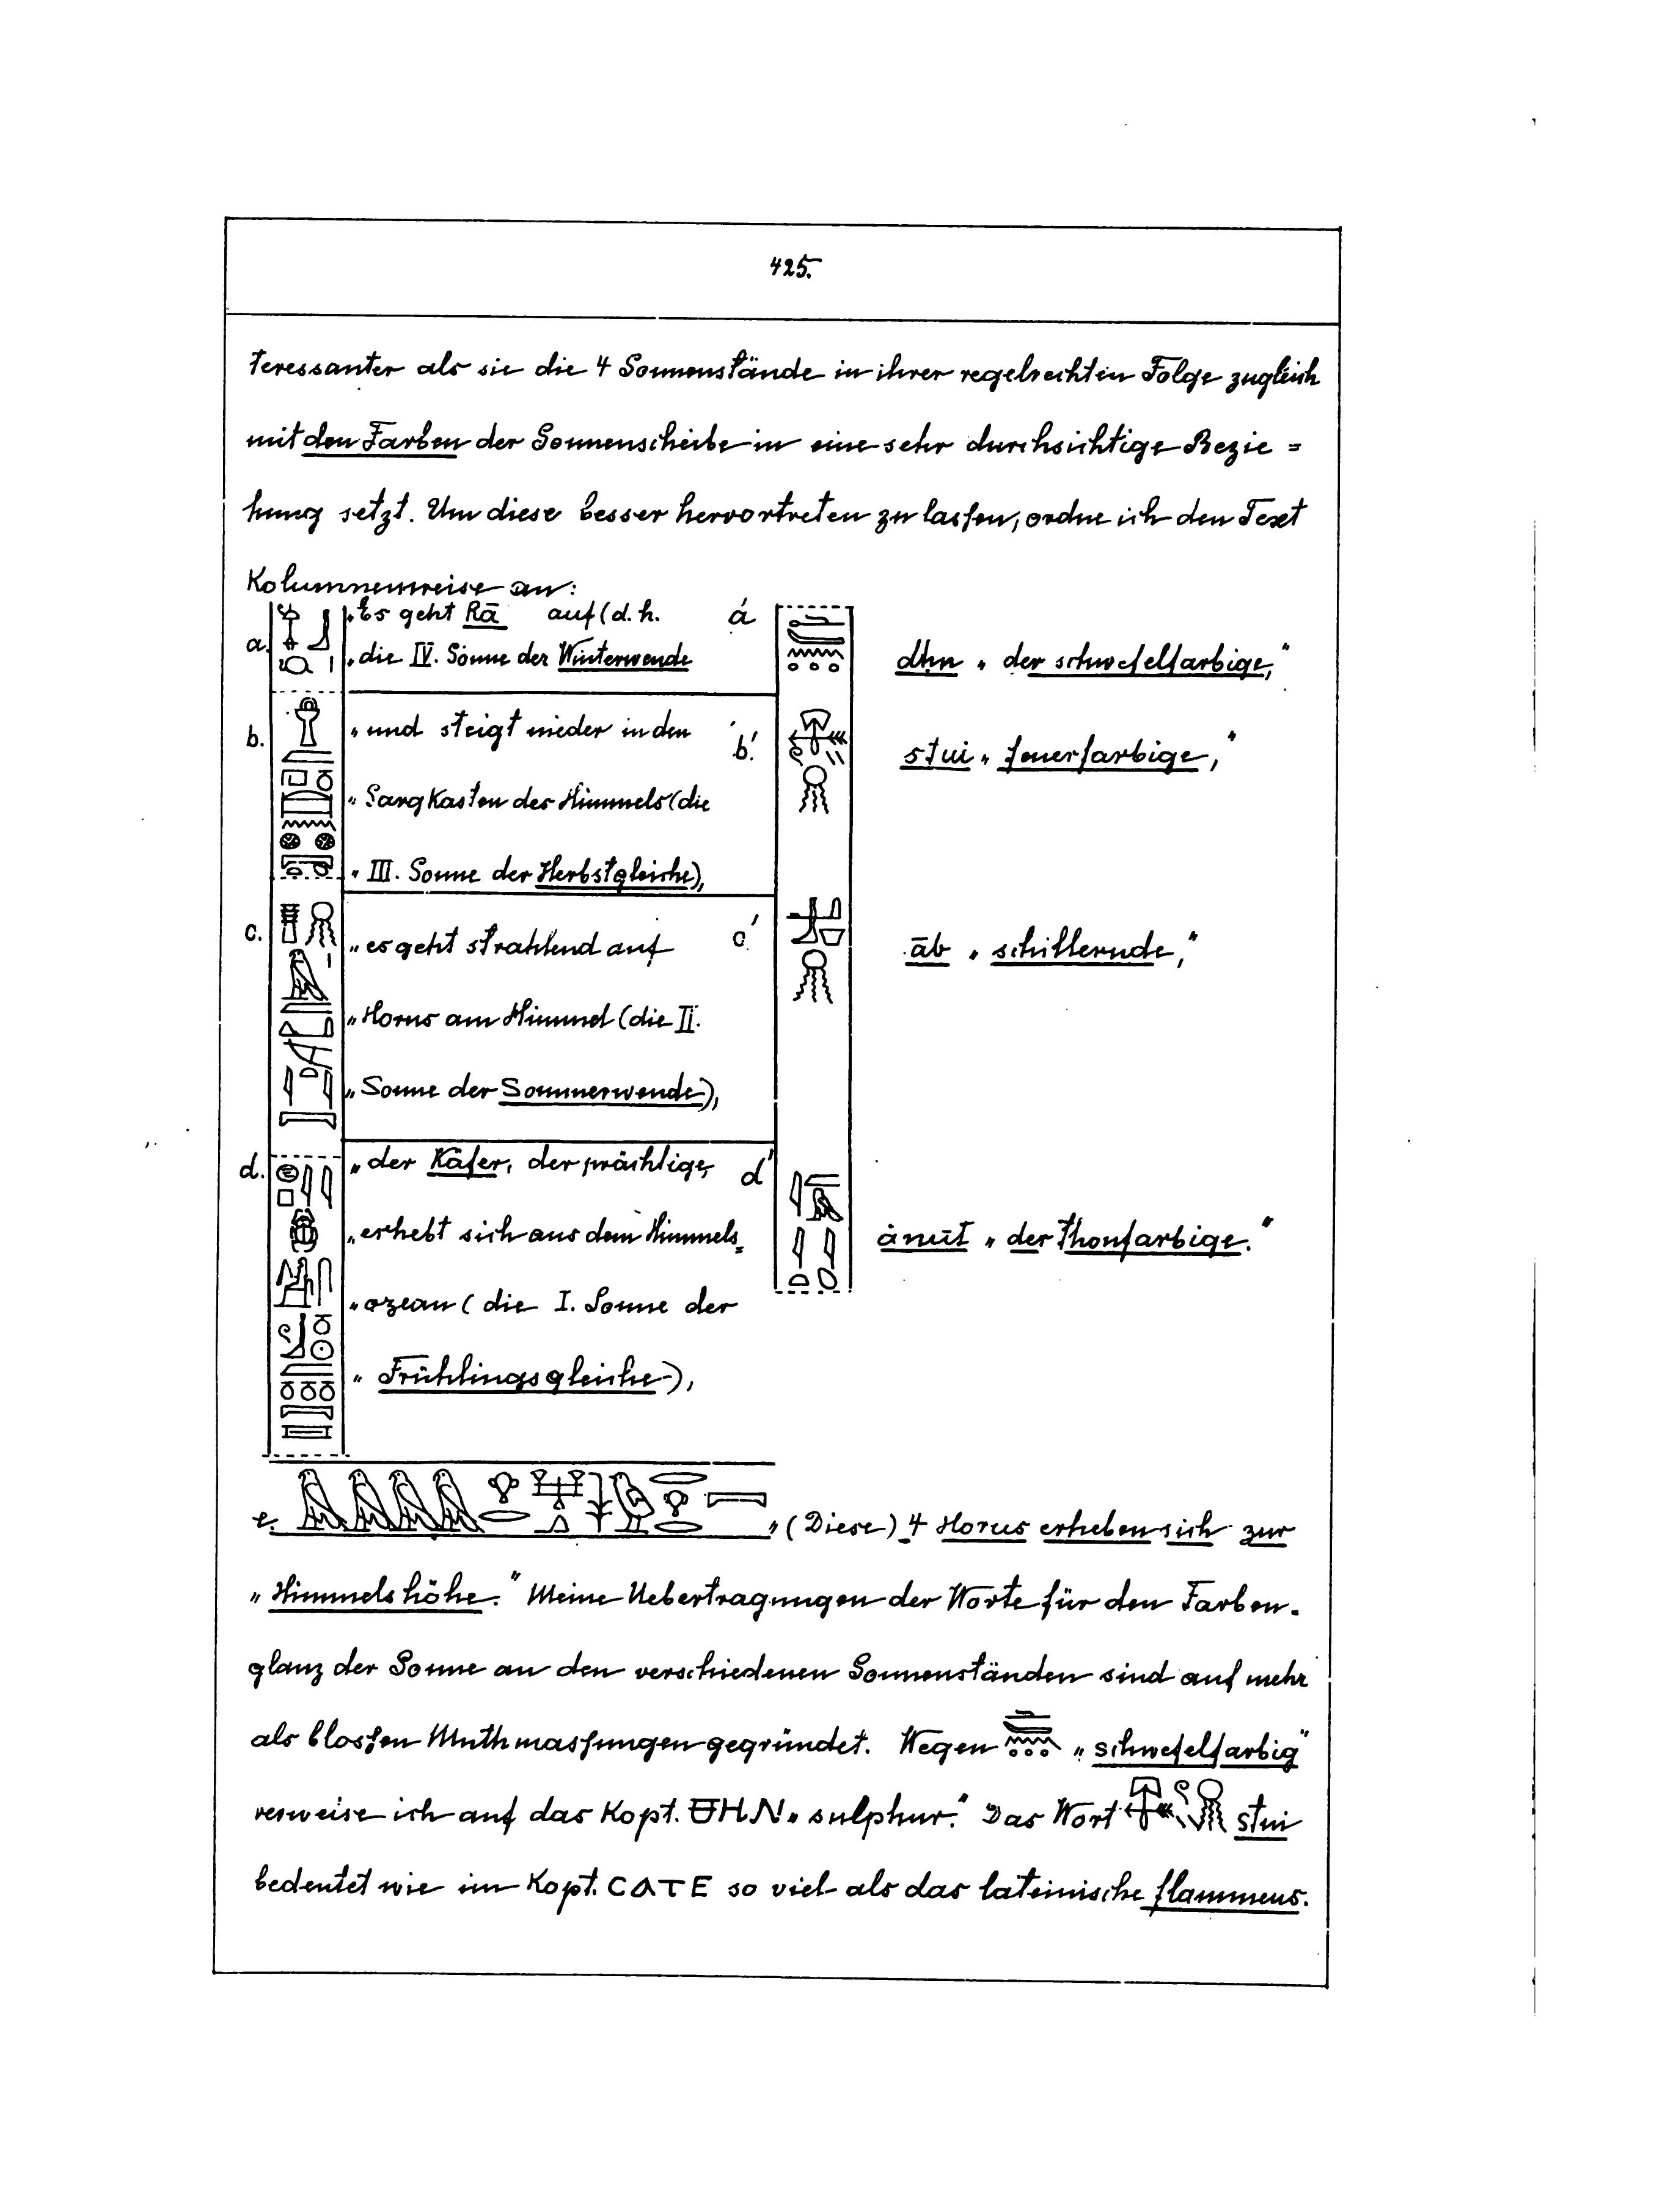 425.
teressanter als sie die 4 Sonnenstände in ihrer regelrechten Folge zugleich
mit den Farben der Sonnenscheibe in eine sehr durchsichtige Bezie =
hung setzt. Um diese besser hervortreten zu lassen, ordne ich den Text
Kolumnenweise an:
a. „Es geht Rā auf (d. h. á
„die IV. Sonne der Winterwende dhn „der schwefelfarbige,"
b. „und steigt nieder in den b' stui „feuerfarbige,"
„Sargkasten des Himmels (die
„III. Sonne der Herbstgleiche),
c. „es geht strahlend auf c' āb „schillernde,"
„Horus am Himmel (die II.
„Sonne der Sommerwende),
d. „der Käfer, der prächtige, d'
„erhebt sich aus dem Himmels= ȧmūt „der Thonfarbige."
„ozean (die I. Sonne der
„Frühlingsgleiche),
e. „(Diese) 4 Horus erheben sich zur
„Himmelshöhe." Meine Uebertragungen der Worte für den Farben-
glanz der Sonne an den verschiedenen Sonnenständen sind auf mehr
als blossen Muthmassungen gegründet. Wegen „schwefelfarbig"
verweise ich auf das Kopt. ⲐHN „sulphur." Das Wort stui
bedeutet wie im Kopt. CATE so viel als das lateinische flammeus.